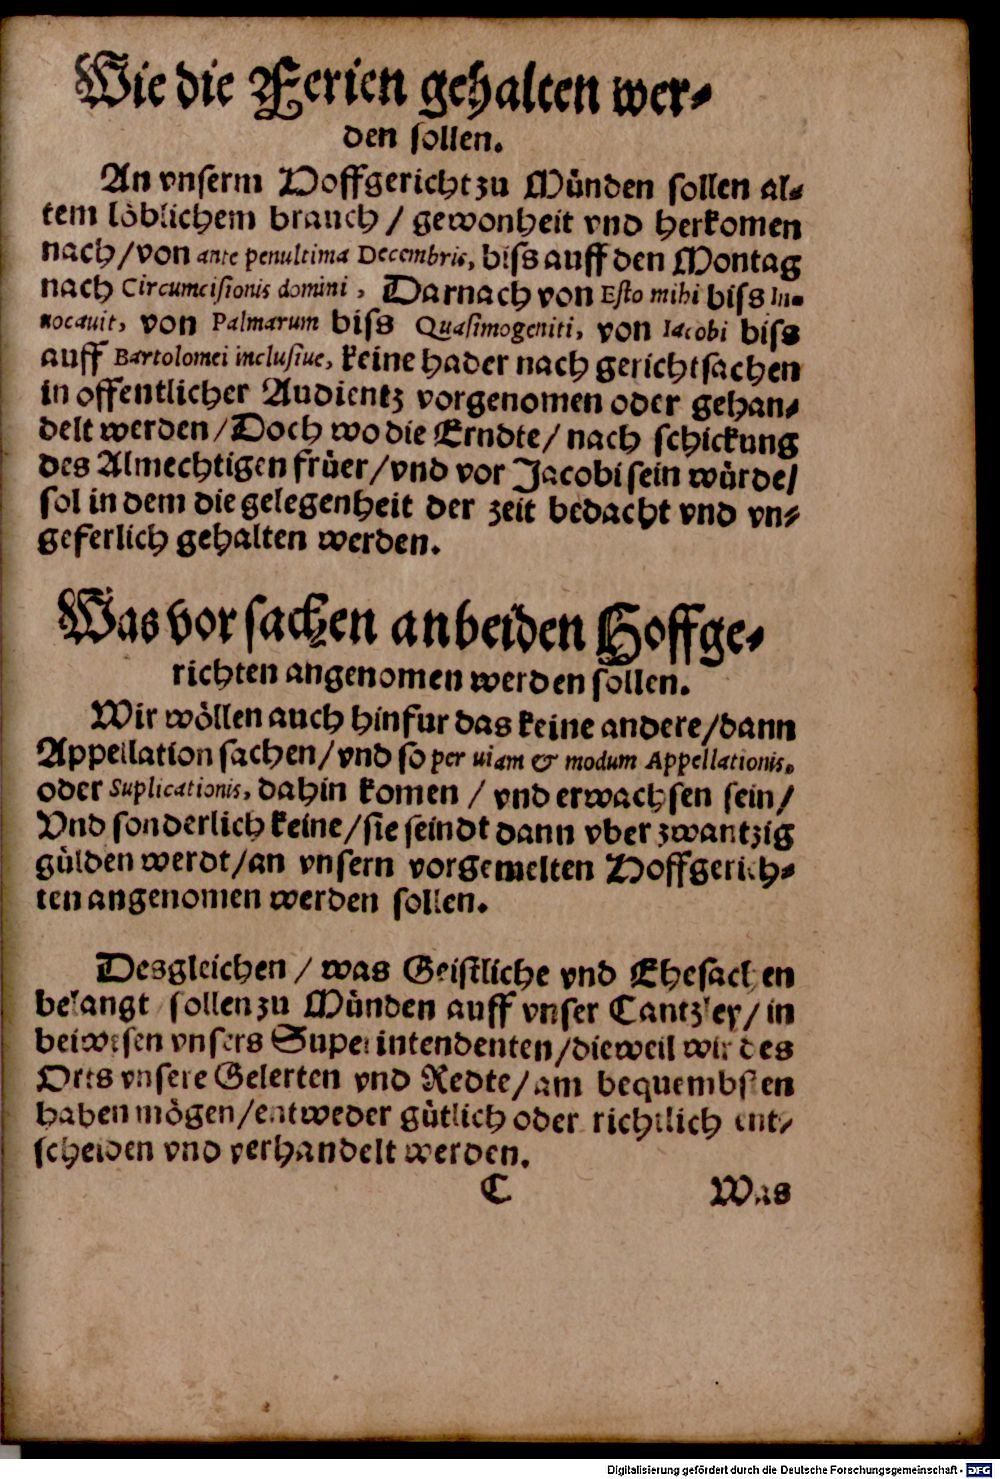 Wie die Ferien gehalten wer-
den sollen.
An vnserm Hoffgericht zu Münden sollen al-
tem löblichem brauch / gewonheit vnd herkomen
nach / von ante penultima Decembris, biss auff den Montag
nach Circumcisionis domini, Darnach von Esto mihi biss In-
uocauit, von Palmarum biss Quasimogeniti, von Iacobi biss
auff Bartolomei inclusiue, keine hader nach gerichtsachen
in offentlicher Audientz vorgenomen oder gehan-
delt werden / Doch wo die Erndte / nach schickung
des Almechtigen früer / vnd vor Jacobi sein würde /
sol in dem die gelegenheit der zeit bedacht vnd vn-
geferlich gehalten werden.
Was vor sachen an beiden Hoffge-
richten angenomen werden sollen.
Wir wöllen auch hinfur das keine andere / dann
Appellation sachen / vnd so per uiam & modum Appellationis.
oder Suplicationis, dahin komen / vnd erwachsen sein /
Vnd sonderlich keine / sie seindt dann vber zwantzig
gülden werdt / an vnsern vorgemelten Hoffgerich-
ten angenomen werden sollen.
Desgleichen / was Geistliche vnd Ehesachen
belangt sollen zu Münden auff vnser Cantzley / in
beiwesen vnsers Superintendenten / dieweil wir des
Orts vnsere Gelerten vnd Redte / am bequembsten
haben mögen / entweder gütlich oder richtlich ent-
scheiden vnd verhandelt werden.
C Was
Digitalisierung gefördert durch die Deutsche Forschungsgemeinschaft - DFG